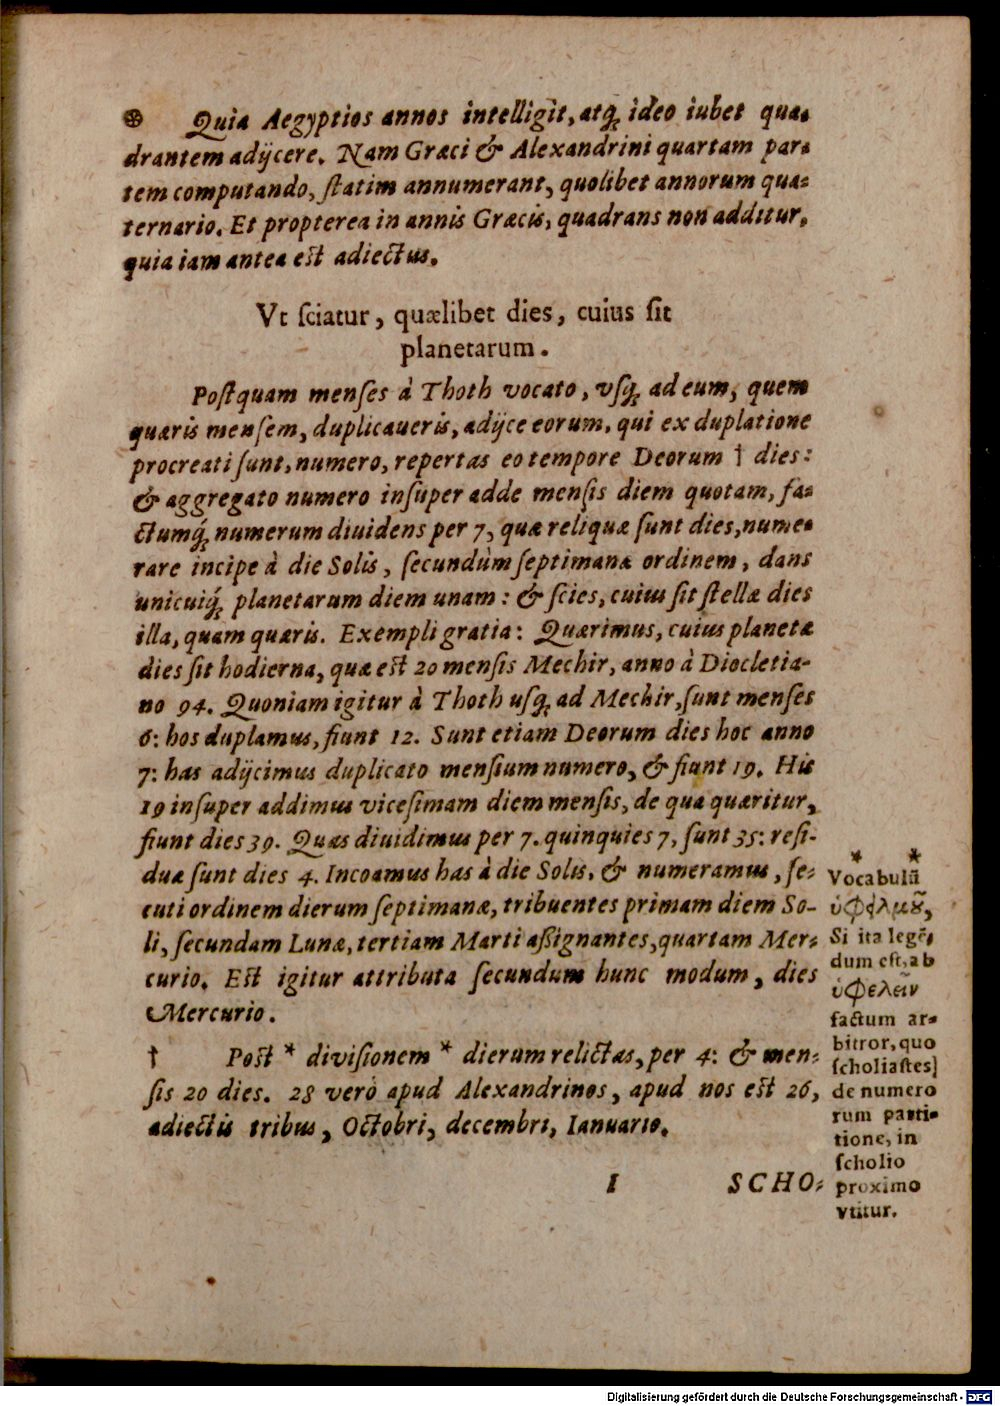 ⊛ Quia Aegyptios annos intelligit, atq; ideo iubet qua-
drantem adijcere. Nam Græci & Alexandrini quartam par-
tem computando, ſtatim annumerant, quolibet annorum qua-
ternario. Et propterea in annis Græcis, quadrans non additur,
quia iam antea eſt adiectus.
Vt ſciatur, quælibet dies, cuius ſit
planetarum.
Poſtquam menſes à Thoth vocato, vſq; ad eum, quem
quæris menſem, duplicaueris, adijce eorum, qui ex duplatione
procreati ſunt, numero, repertas eo tempore Deorum † dies:
& aggregato numero inſuper adde menſis diem quotam, fa-
ctumq́; numerum diuidens per 7, quæ reliquæ ſunt dies, nume-
rare incipe à die Solis, ſecundùm ſeptimanæ ordinem, dans
unicuiq́; planetarum diem unam: & ſcies, cuius ſit ſtellæ dies
illa, quam quæris. Exempli gratia: Quærimus, cuius planetæ
dies ſit hodierna, quæ eſt 20 menſis Mechir, anno à Diocletia-
no 94. Quoniam igitur à Thoth uſq; ad Mechir, ſunt menſes
6: hos duplamus, fiunt 12. Sunt etiam Deorum dies hoc anno
7: has adijcimus duplicato menſium numero, & fiunt 19. His
19 inſuper addimus viceſimam diem menſis, de qua quæritur,
fiunt dies 39. Quas diuidimus per 7. quinquies 7, ſunt 35: reſi-
duæ ſunt dies 4. Incoamus has à die Solis, & numeramus, ſe-
cuti ordinem dierum ſeptimanæ, tribuentes primam diem So-
li, ſecundam Lunæ, tertiam Marti aßignantes, quartam Mer-
curio. Eſt igitur attributa ſecundum hunc modum, dies
Mercurio.
† Poſt * diviſionem * dierum relictas, per 4: & men-
ſis 20 dies. 28 verò apud Alexandrinos, apud nos eſt 26,
adiectis tribus, Octobri, decembri, Ianuario.
I SCHO-
* *
Vocabulũ
ὑφελμοῦ,
Si ita legẽ-
dum eſt, ab
ὑφελεῖν
factum ar-
bitror, quo
ſcholiaſtes
de numero
rum parti-
tione, in
ſcholio
proximo
vtitur.
Digitalisierung gefördert durch die Deutsche Forschungsgemeinschaft - DFG